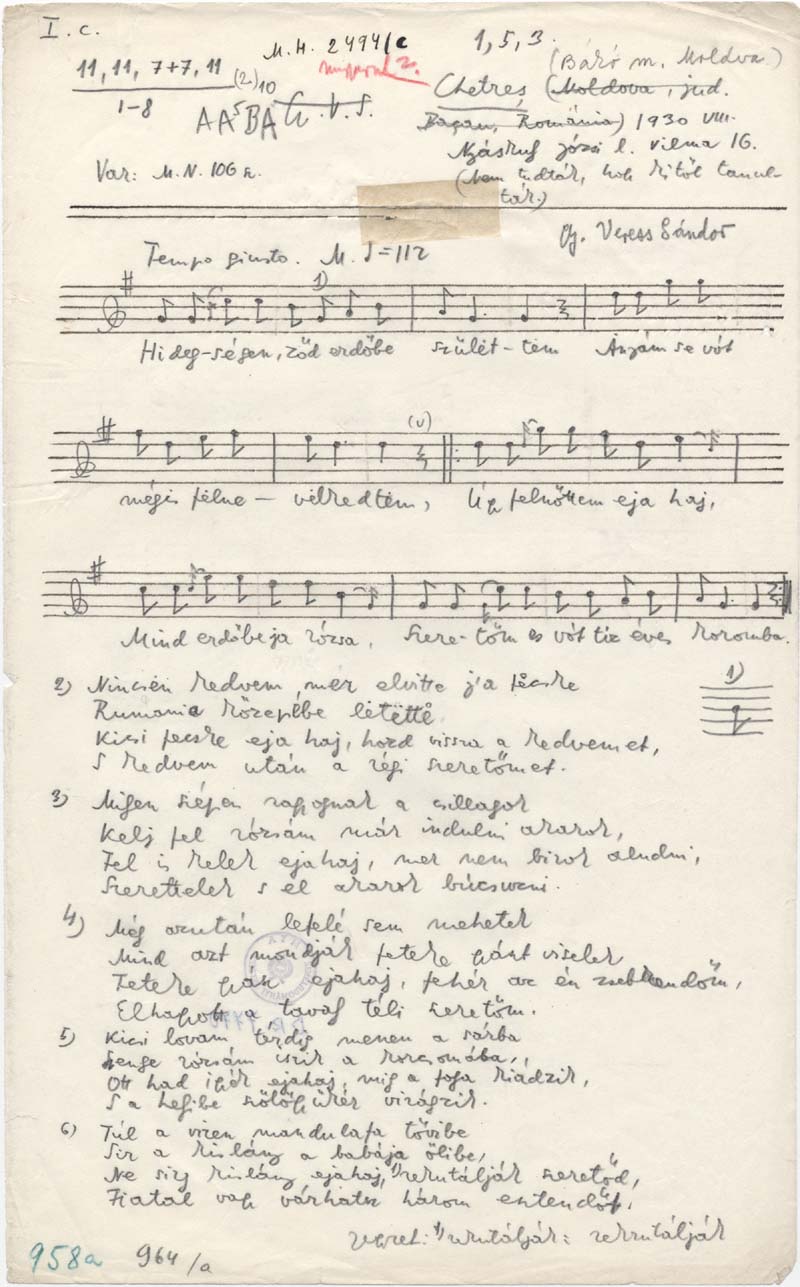 I. c.
M. H. 2494/c
1, 5, 3.
(Báró m. Moldva.)
11, 11, 7+7, 11
1-8
(2.) 10
A A5 B A
Chetres (Moldova, jud.
Bacau, România) 1930 VIII.
józsi l. vilma 16.
Var: M. N. 106
(Nem tudták, hogy kitől tanul-
ták.)
Gy. Veress Sándor
Tempo giusto. M. ♩=112
1)
Hideg-ségen, zöd erdőbe szület-tem Anyám se vót
(U)
mégis félne- velkedtem, Úgy felnőttem eja haj,
Mind erdőbe ja rózsa, Szere-tőm es vót tiz éves koromba.
1)
2) Nincsen kedvem, mer elvitte j'a fécske
Rumania közepibe letette
Kicsi fecske eja haj, hozd vissza a kedvemet,
S kedvem után a régi szeretőmet.
3) Mijen szépen ragyognak a csillagok
Kelj fel rózsám már indulni akarok,
Fel is kelek ejahaj, mer nem birok aludni,
Szerettelek s el akarok búcsuzni.
4) Még azután lefelé sem mehetek
Mind azt mondják fekete gyászt viselek
Fekete gyász ejahaj, fehér az én zsebkendőm,
Elhagyott a tavaj téli szeretőm.
5) Kicsi lovam térdig menen a sárba
rózsám iszik a korcsomába,
Ott had igyék ejahaj, mig a foga
S a hegibe szőlőgyükér virágzik.
6) Túl a vizen mandulafa tövibe
Sir a kislány a babája ölibe,
Ne sirj kislány ejahaj, 1) rekutálják szeretőd,
Fiatal vagy várhatsz három esztendőt.
1) rekutálják: rekrutálják
958a 964/a